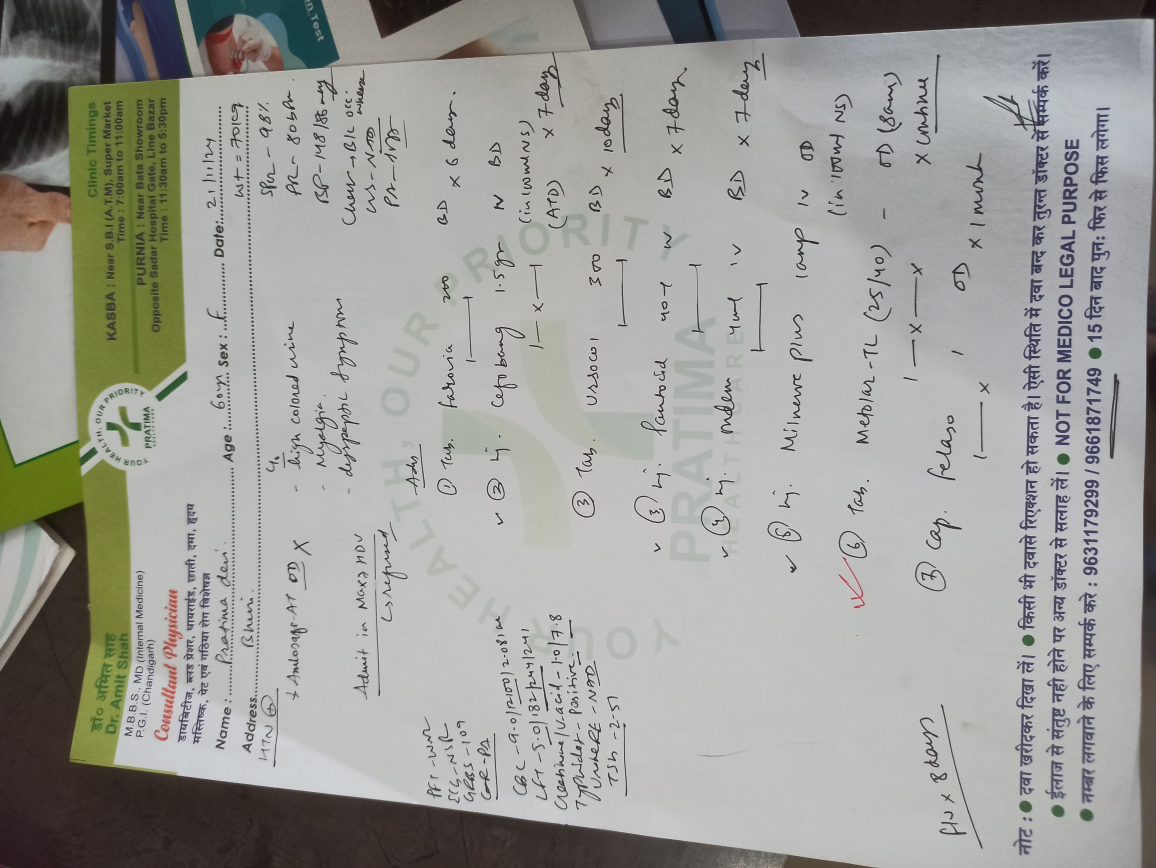 डॉ० अमित साह
Dr. Amit Shah
M.B.B.S., MD (Internal Medicine)
P.G.I. (Chandigarh)
Consultant Physician
डायबिटीज, ब्लड प्रेशर, थायराईड, छाती, दमा, हृदय
मस्तिष्क, पेट एवं गठिया रोग विशेषज्ञ
YOUR HEALTH, OUR PRIORITY
PRATIMA
Clinic Timings
KASBA : Near S.B.I (A.T.M), Super Market
Time : 7:00am to 11:00am
PURNIA : Near Bata Showroom
Opposite Sadar Hospital Gate, Line Bazar
Time : 11:30am to 5:30pm
Name : Pratima devi. Age : 60yr Sex : F Date: 21/11/24
Address
HTN
+ Amlosafe-AT OD X
Admit in Max HDU
↳ refused
- high colored urine
- Myalgia
- dyspeptic symptoms
Wt = 70kg
SPO2 - 98%
PR - 80bpm.
BP - 148/86
Chest → B/L occ. wheeze
CVS - NAD
PFT - WNL
ECG - NSR
GRBS - 109
CBC - 9.0/7100/2.08
LFT - 5.0/182/244/241
Creatinine/U.acid - 1.0/7.8
Typhidot - Positive
Urine R/E - NAD
TSH - 2.51
Adv
① Tab. Farovia 200 BD x 6 days.
② Inj. Cefobang 1.5gm IV BD
1 — x — 1 (in 100ml NS)
(ATD) x 7 days
③ Tab. Ursocol 300 BD x 10 days
③ Inj. Pantocid 40 IV BD x 7 days.
④ Inj. Ondem 4ml IV BD x 7 days
⑤ Inj. Milnerve Plus 1amp IV OD
(in 100ml NS)
⑥ Tab. Metolar-TL (25/40) - OD (8am)
1 — x — x x continue
⑦ Cap. Felaso 1 OD
1 — x x 1 month
F/U x 8 days
YOUR HEALTH, OUR PRIORITY
PRATIMA
HEALTHCARE
नोट : ● दवा खरीदकर दिखा लें। ● किसी भी दवासे रिएक्शन हो सकता है। ऐसी स्थिति में दवा बन्द कर तुरन्त डॉक्टर से सम्पर्क करें।
● ईलाज से संतुष्ट नही होने पर अन्य डॉक्टर से सलाह लें। ● NOT FOR MEDICO LEGAL PURPOSE
● नम्बर लगवाने के लिए सम्पर्क करे : 9631179299 / 9661871749 ● 15 दिन बाद पुन: फिर से फिस लगेगा।